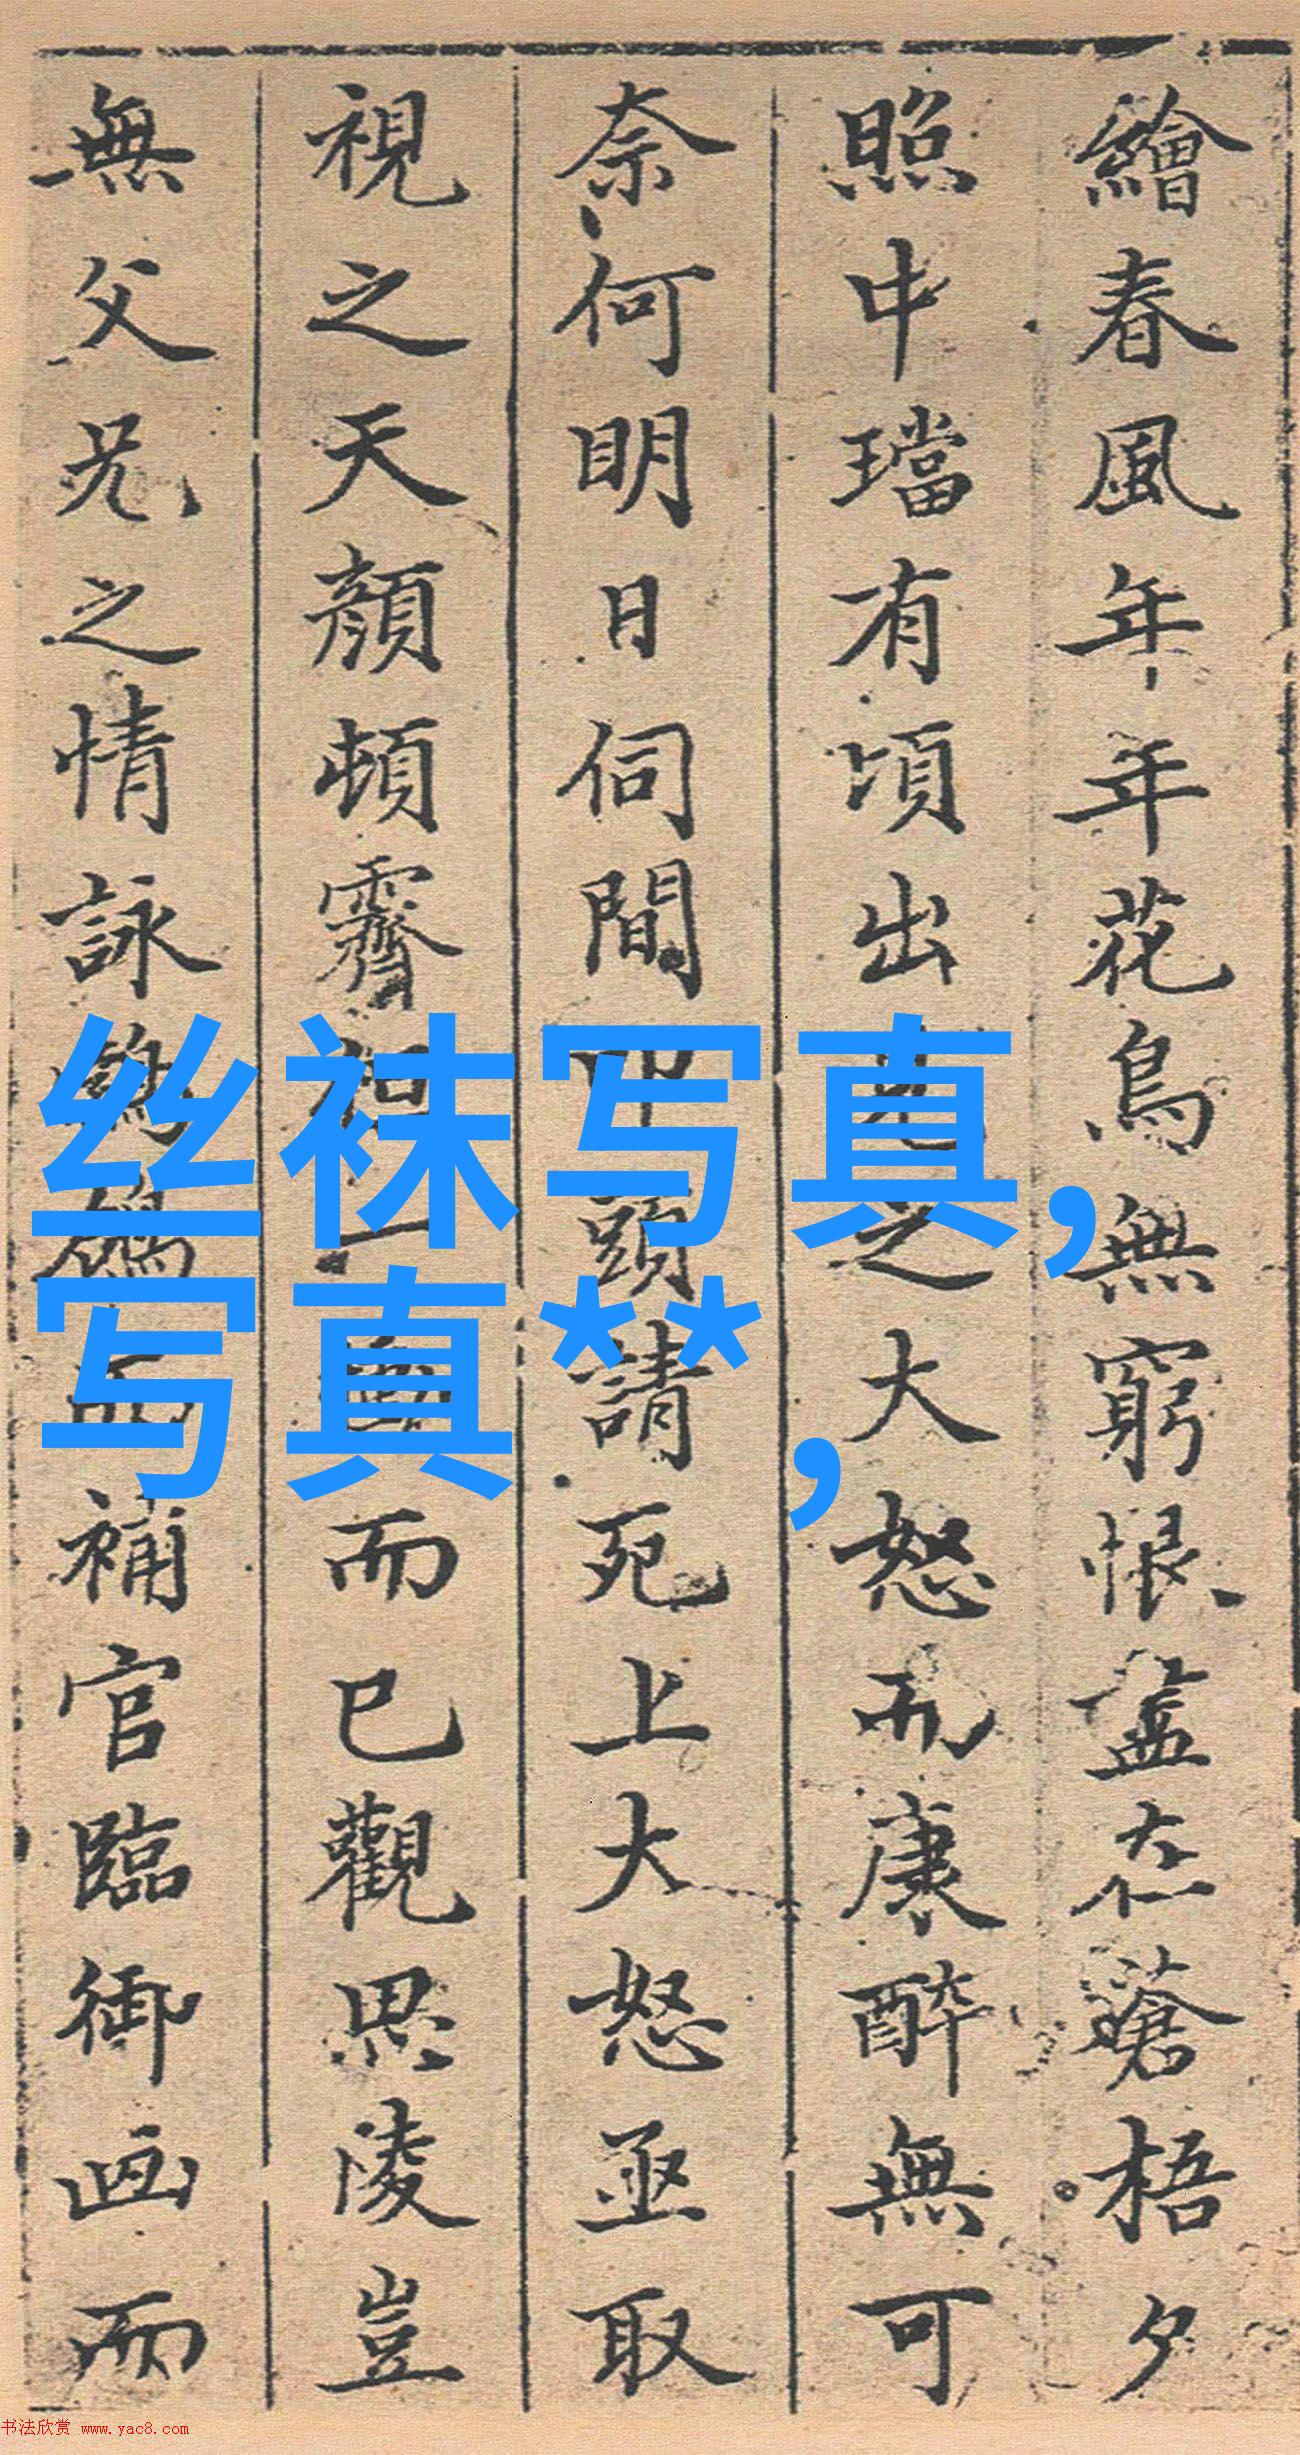 繪春風年年花鳥無窮恨盡在蒼梧夕
照中璫有頃出見之大怒而康醉無可
奈何明日伺間叩頭請死上大怒亟取
視之天顏頓霽但一慟而已觀思陵豈
無父兄之情詠鶺鴒而補官臨御画而
丝袜写真,
写真**,
书法欣赏 www.yac8.com